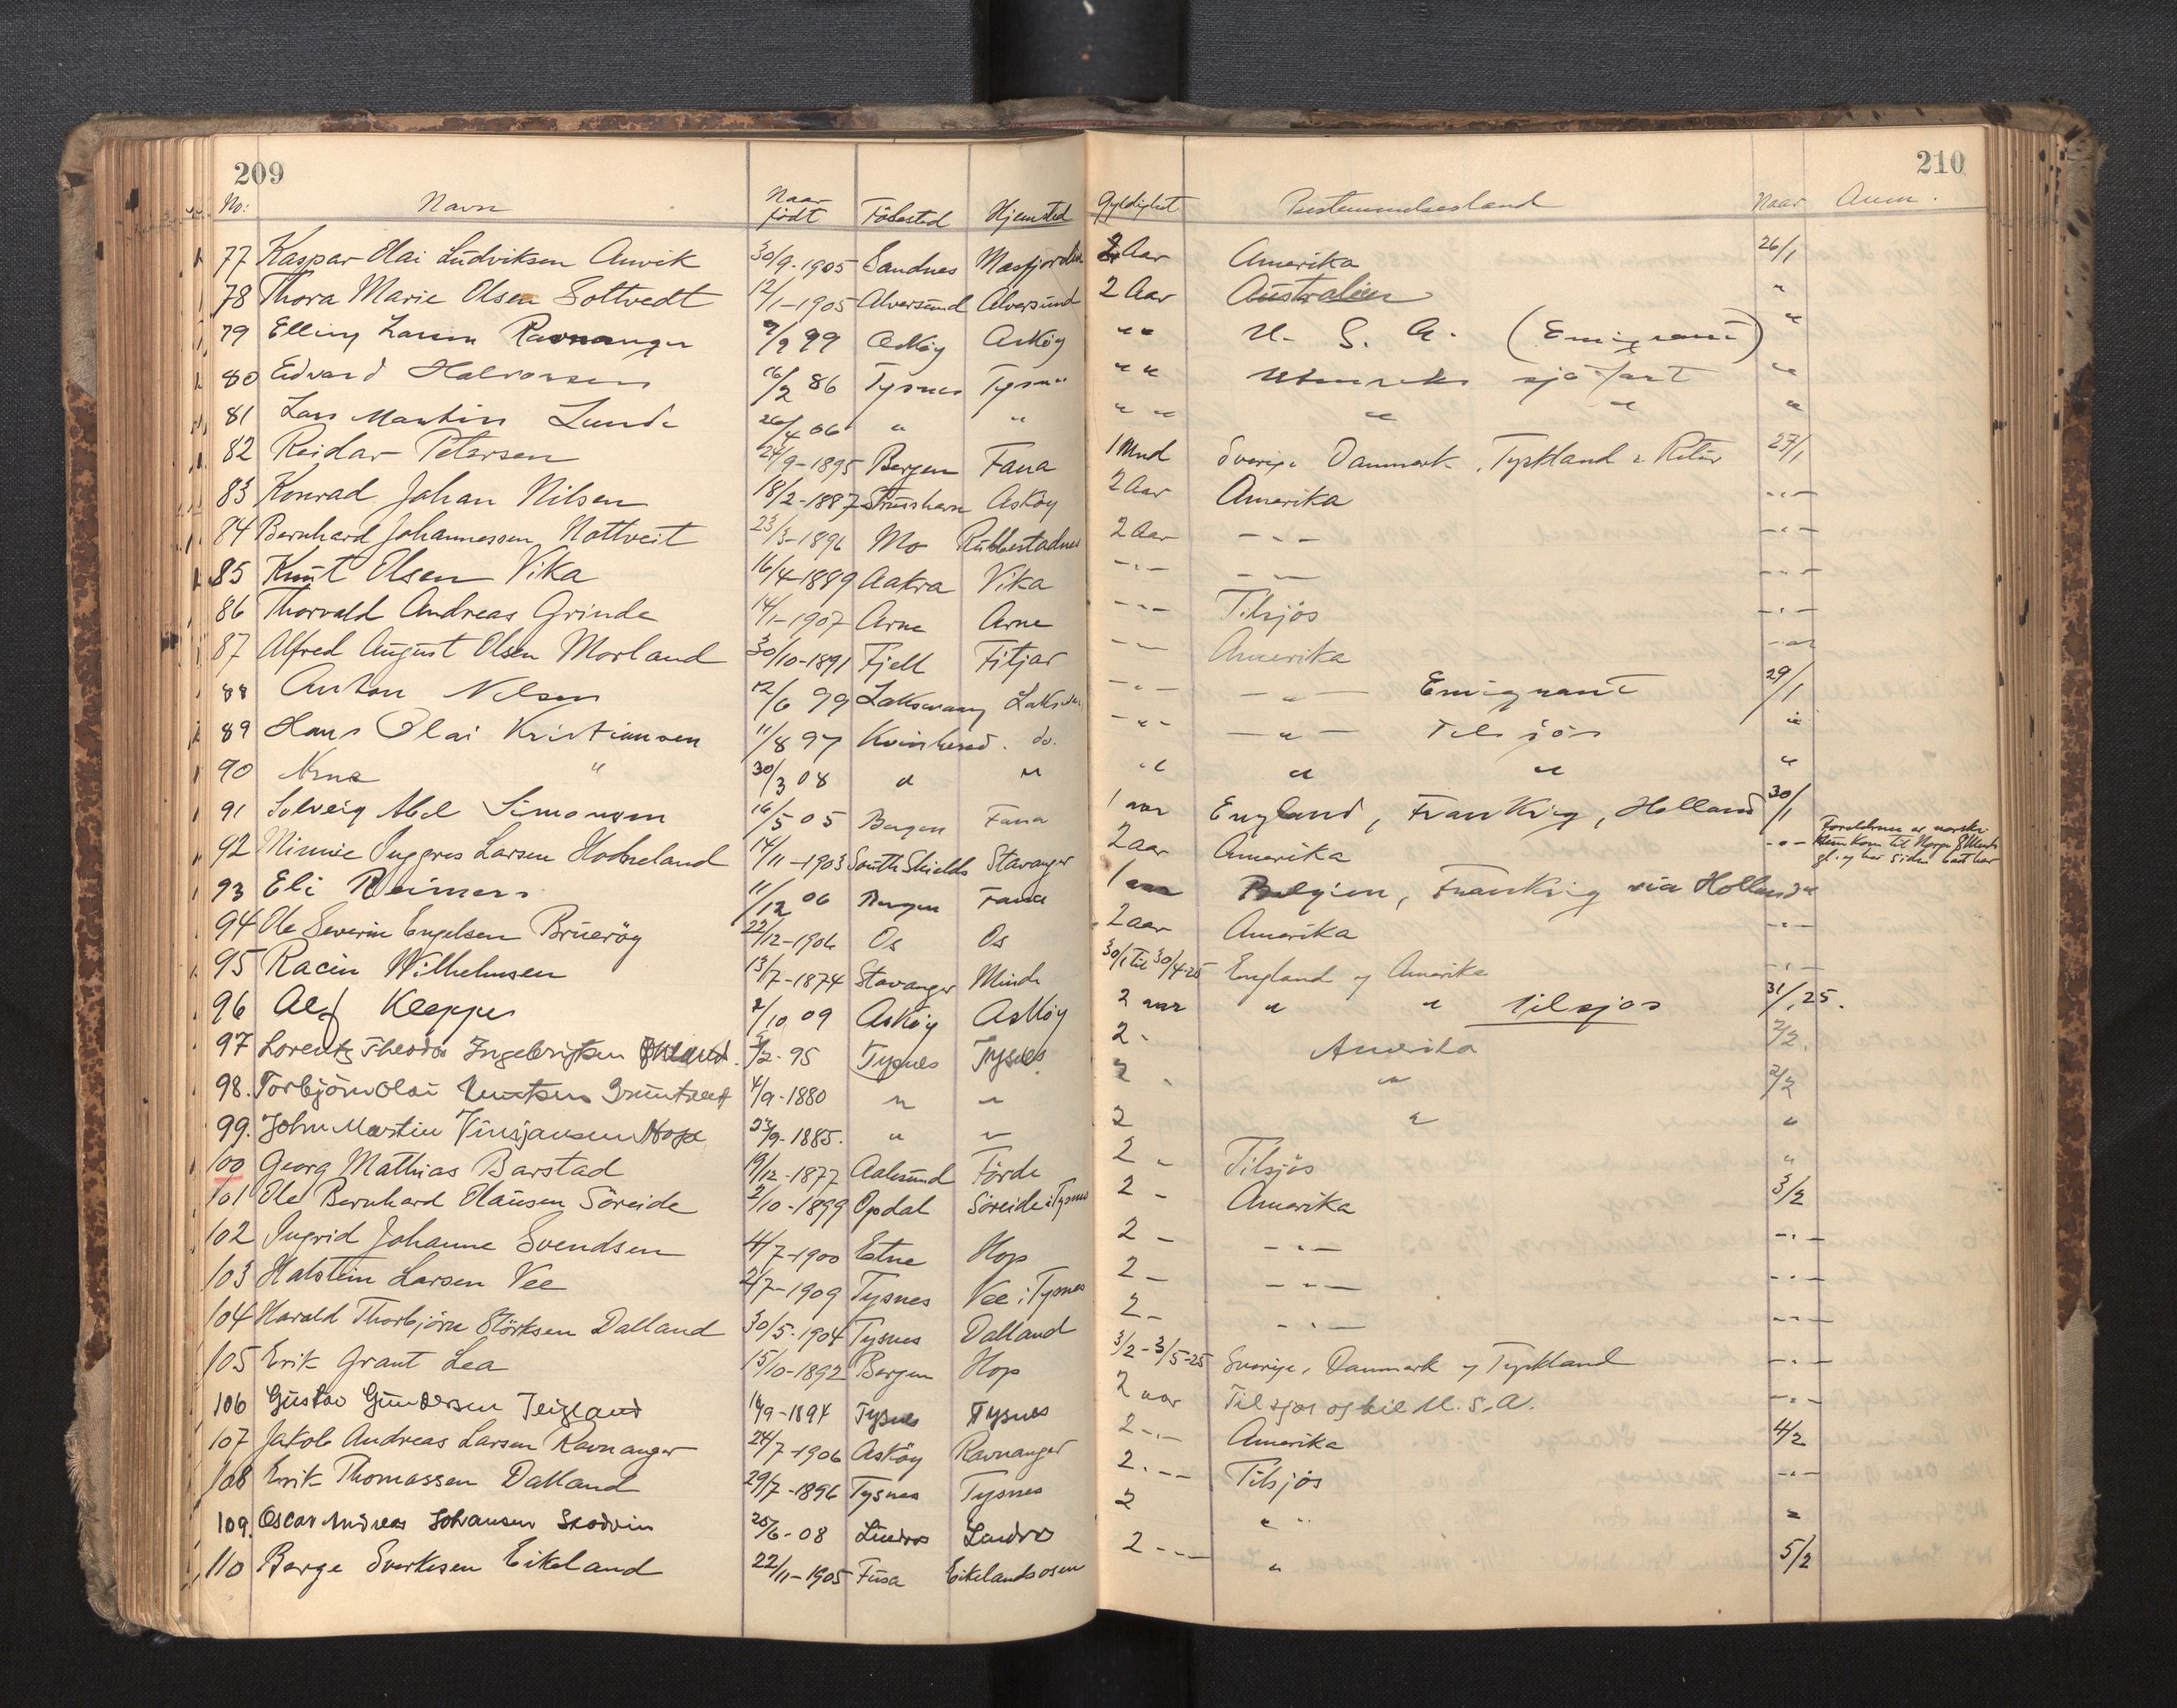 209 210
No: Navn Naar født Födested Hjemsted Gyldighet Bestemmelsesland Naar Anm.
77 Kaspar Olai Ludviksen Anvik 30/9-1905 Sandnes Masfjorden 2 Aar Amerika 26/1
78 Thora Marie Olsen Soltvedt 12/1-1905 Alversund Alversund 2 Aar Australien "
79 Elling Larsen Ravnanger 9/9 99 Asköy Asköy " " U. S. A. (Emigrant) "
80 Edvard Halvorsen 16/2 86 Tysnes Tysnes " " Utenriks sjöfart "
81 Lars Martin Lunde 26/4 06 " " " " " " "
82 Reidar Petersen 24/9-1895 Bergen Fana 1 Mnd Sverige Danmark, Tyskland & Retur 27/1
83 Konrad Johan Nilsen 18/2-1887 Strusshavn Asköy 2 Aar Amerika -"-
84 Bernhard Johannessen Nottveit 23/3-1896 Mo Rubbestadnes 2 Aar -"- -"-
85 Knut Olsen Vika 16/4-1889 Aakra Vika -"- -"- -"-
86 Thorvald Andreas Grinde 14/1-1907 Arne Arne -"- Tilsjös -"-
87 Alfred August Olsen Morland 30/10-1891 Fjell Fitjar -"- Amerika -"-
88 Anton Nilsen 12/6 99 Laksevaag -"- -"- Emigrant 29/1
89 Hans Olai Kristiansen 11/8 97 Kvinherad do. -"- -"- Tilsjös "
90 " 30/3 08 " " " " " "
91 Solveig Abel Simonsen 16/5 05 Bergen Fana 1 aar England, Frankrig, Holland 30/1
92 Minnie Larsen Hodneland 14/11-1903 South Shields Stavanger 2 aar Amerika -"- Foreldrene er norske kom til Norge gl. og har siden
93 Eli Reimers 11/12 06 Bergen Fana 1 aar Belgien, Frankrig via Holland "
94 Ole Severin Engelsen Brueröy 22/12-1906 Os Os 2 aar Amerika -"-
95 Racin Wilhelmsen 13/7-1874 Stavanger Minde 30/1 til 30/4-25 England og Amerika -"-
96 Alf Kleppe 2/10 09 Asköy Asköy 2 aar " " tilsjös 31/1 25.
97 Lorentz Theodor Ingebrigtsen /2-95 Tysnes Tysnes 2 - Amerika 2/2.
98. Torbjörn Olai Knutsen 4/9-1880 " " 2 - " 2/2
99. John Martin Hope 23/9-1885. " " 2 " "
100 Georg Mathias Barstad 19/12-1877 Aalesund Förde 2 - Tilsjös "
101 Ole Bernhard Olausen Söreide 2/10-1899 Opdal Söreide i Tysnes 2 - Amerika 3/2
102 Ingrid Johanne Svendsen 4/7-1900 Etne Hop 2 - -"- -"-
103 Halstein Larsen Vee 2/7-1909 Tysnes Vee i Tysnes 2 - -"- -"-
104 Harald Thorbjörn Störksen Dalland 30/5-1904 Tysnes Dalland 2 - -"- -"-
105 Erik Grant Lea 15/10-1892 Bergen Hop 3/2-3/5-25 Sverige, Danmark og Tyskland -"-
106 Gustav Gundersen Teigland 14/9-1894 Tysnes Tysnes 2 aar Tilsjös og til U.S.A. -"-
107 Jakob Andreas Larsen Ravnanger 24/7-1906 Asköy Ravnanger 2 -"- Amerika 4/2
108 Erik Thomassen Dalland 29/7-1896 Tysnes Tysnes 2 -"- Tilsjös -"-
109. Oscar Andreas Johansen Skodvin 25/6-08 Lindås Lindås 2 " " "
110 Berge Sverkesen Eikeland 22/11-1905 Fusa Eikelandsosen 2 -"- " 5/2